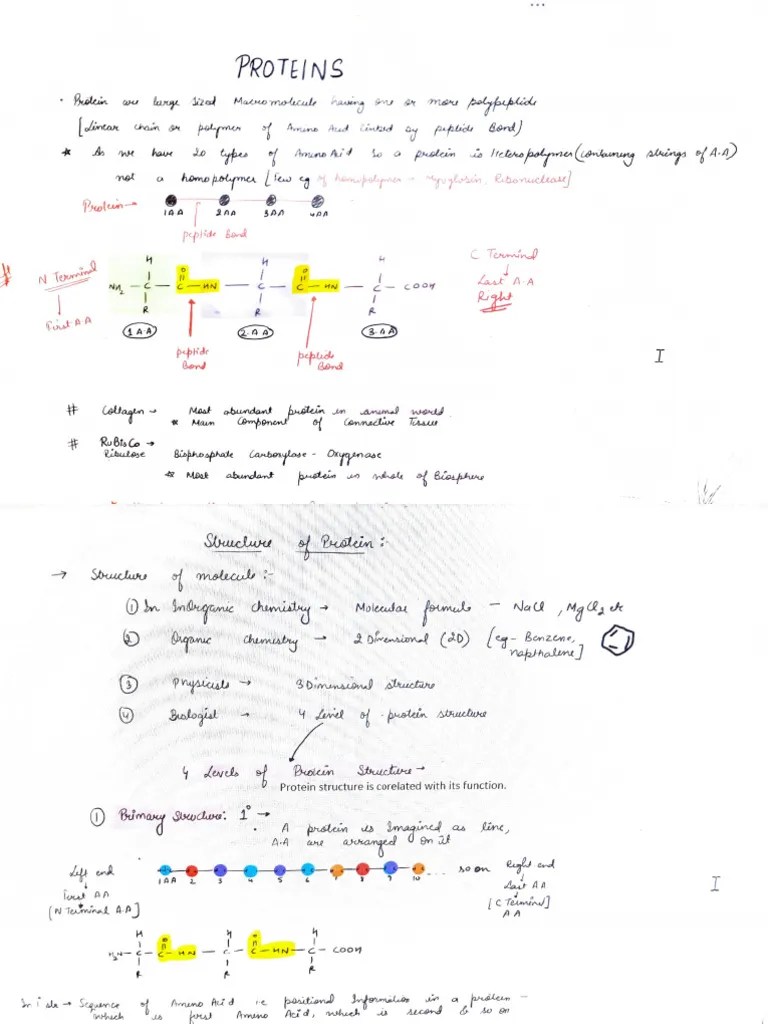 PROTEINS
· Protein are large sized Macromolecule having one or more polypeptide
[Linear chain or polymer of Amino Acid linked by peptide Bond)
* As we have 20 types of Amino Acid so a protein is Heteropolymer (containing strings of A.A)
not a homopolymer [Few eg of homopolymer → Myoglobin, Ribonuclease]
Protein →
1AA 2AA 3AA 4AA
peptide Bond
N Terminal
First A.A
H O H O H
NH2 — C — C — HN — C — C — HN — C — COOH
R R R
1 A.A 2.A.A 3.A.A
peptide Bond
peptide Bond
C Terminal
Last A.A
Right
I
# Collagen → Most abundant protein in animal world.
* Main Component of Connective Tissue
# RuBisCo →
Ribulose Bisphosphate Carboxylase - Oxygenase
* Most abundant protein in whole of Biosphere
Structure of Protein :-
→ Structure of molecule :-
① In InOrganic chemistry → Molecular formula — NaCl, MgCl2 etc
② Organic chemistry → 2 Dimensional (2D) [eg - Benzene,
napthalene]
③ Physicists → 3 Dimensional structure
④ Biologist → 4 Level of protein structure
4 Levels of Protein Structure →
Protein structure is corelated with its function.
① Primary Structure: 1° →
· A protein is Imagined as line,
A.A are arranged on it
Left end
First AA
[N Terminal A.A]
1AA 2 3 4 5 6 7 8 9 10 ... so on
Right end
Last AA
[C Terminal]
AA
I
H O H O H
H2N — C — C — HN — C — C — HN — C — COOH
R R R
In 1° str → Sequence of Amino Acid i.e positional Information in a protein —
which is first Amino Acid, which is second & so on